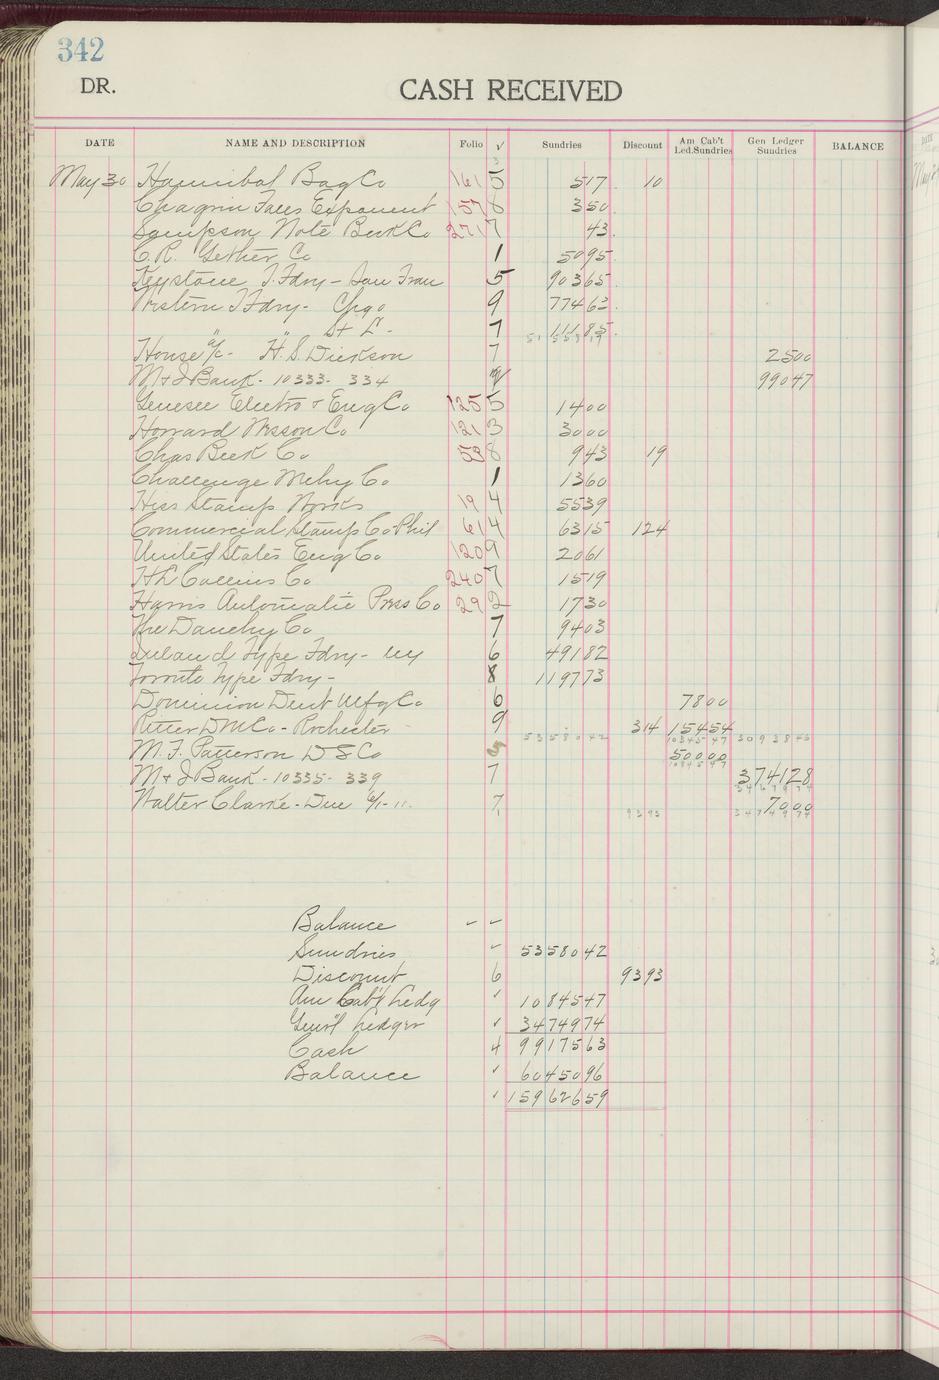 342
DR. CASH RECEIVED
DATE NAME AND DESCRIPTION Folio ✓ Sundries Discount Am Cab't Led.Sundries Gen Ledger Sundries BALANCE
3
May 30 Hannibal Bag Co 161 5 517 10
Chagrin Falls Exponent 157 8 350
Sampson Note Book Co 271 7 43
C.R. Gether Co 1 5095
Keystone T. Fdry - San Fran 5 90365
Western T Fdry - Chgo 9 77463
" " St L. - 7 11185
House a/c - H.S. Dickson 7 2500
M & J Bank - 10333 - 334 99047
Genesee Electro & Eng Co 125 5 1400
Howard Wesson Co 121 3 3000
Chas Beck Co 53 8 943 19
Challenge Mchy Co 1 1360
Hiss Stamp Works 19 4 5539
Commercial Stamp Co Phil 61 4 6315 124
United States Eng Co 120 9 2061
H L Collins Co 240 7 1519
Harris Automatic Press Co 29 2 1730
The Dauchy Co 7 9403
Inland Type Fdry - NY 6 49182
Toronto Type Fdry - 8 119773
Dominion Dent Mfg Co 6 7800
Ritter D M Co - Rochester 9 314 15454
5358042 1034547 3093846
M. F. Patterson D S Co 50000
1084547
M & J Bank - 10335 - 339 7 374128
3467974
Walter Clarke - Due 6/1-11 7 7000
9393 3474974
Balance - -
Sundries ✓ 5358042
Discount 6 9393
Am Cab't Ledg ✓ 1084547
Gen'l Ledger ✓ 3474974
Cash 4 9917563
Balance ✓ 6045096
✓ 15962659